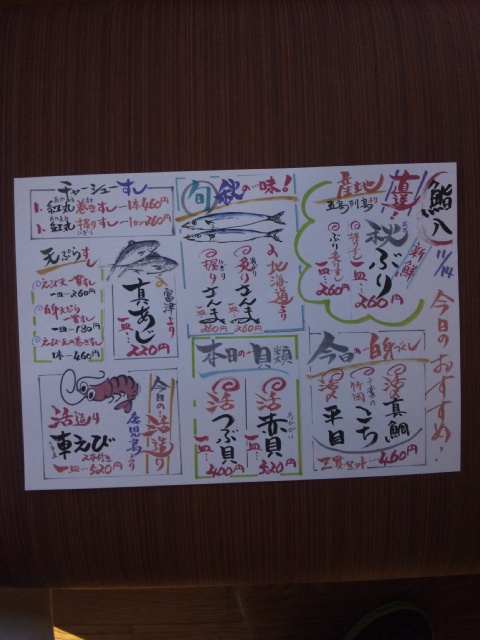 鮨八
11/14
新鮮
今日のおすすめ!
産地直送!
五島列島より
秋ぶり
一皿…260円
一皿…260円
旬
秋の味!
北海道より
炙りさんま
一皿…260円
握りさんま
一皿…260円
チャーシューすし
1.紅丸巻きすし…1本460円
1.紅丸握りすし…1カン260円
天ぷらすし
えび天一貫すし
一皿…260円
白身天ぷら一貫すし
一皿…130円
えび天巻すし
1本…460円
富津より
真あじ
一皿…220円
今日の白身づくし
活 真鯛
千葉の竹岡
こち
活〆
平目
三貫セット…460円
本日の貝類
活 赤貝
あかがい
一皿…520円
活 つぶ貝
一皿…400円
今日の活造り
鹿児島より
活造り
車えび
2本付き
一皿…520円